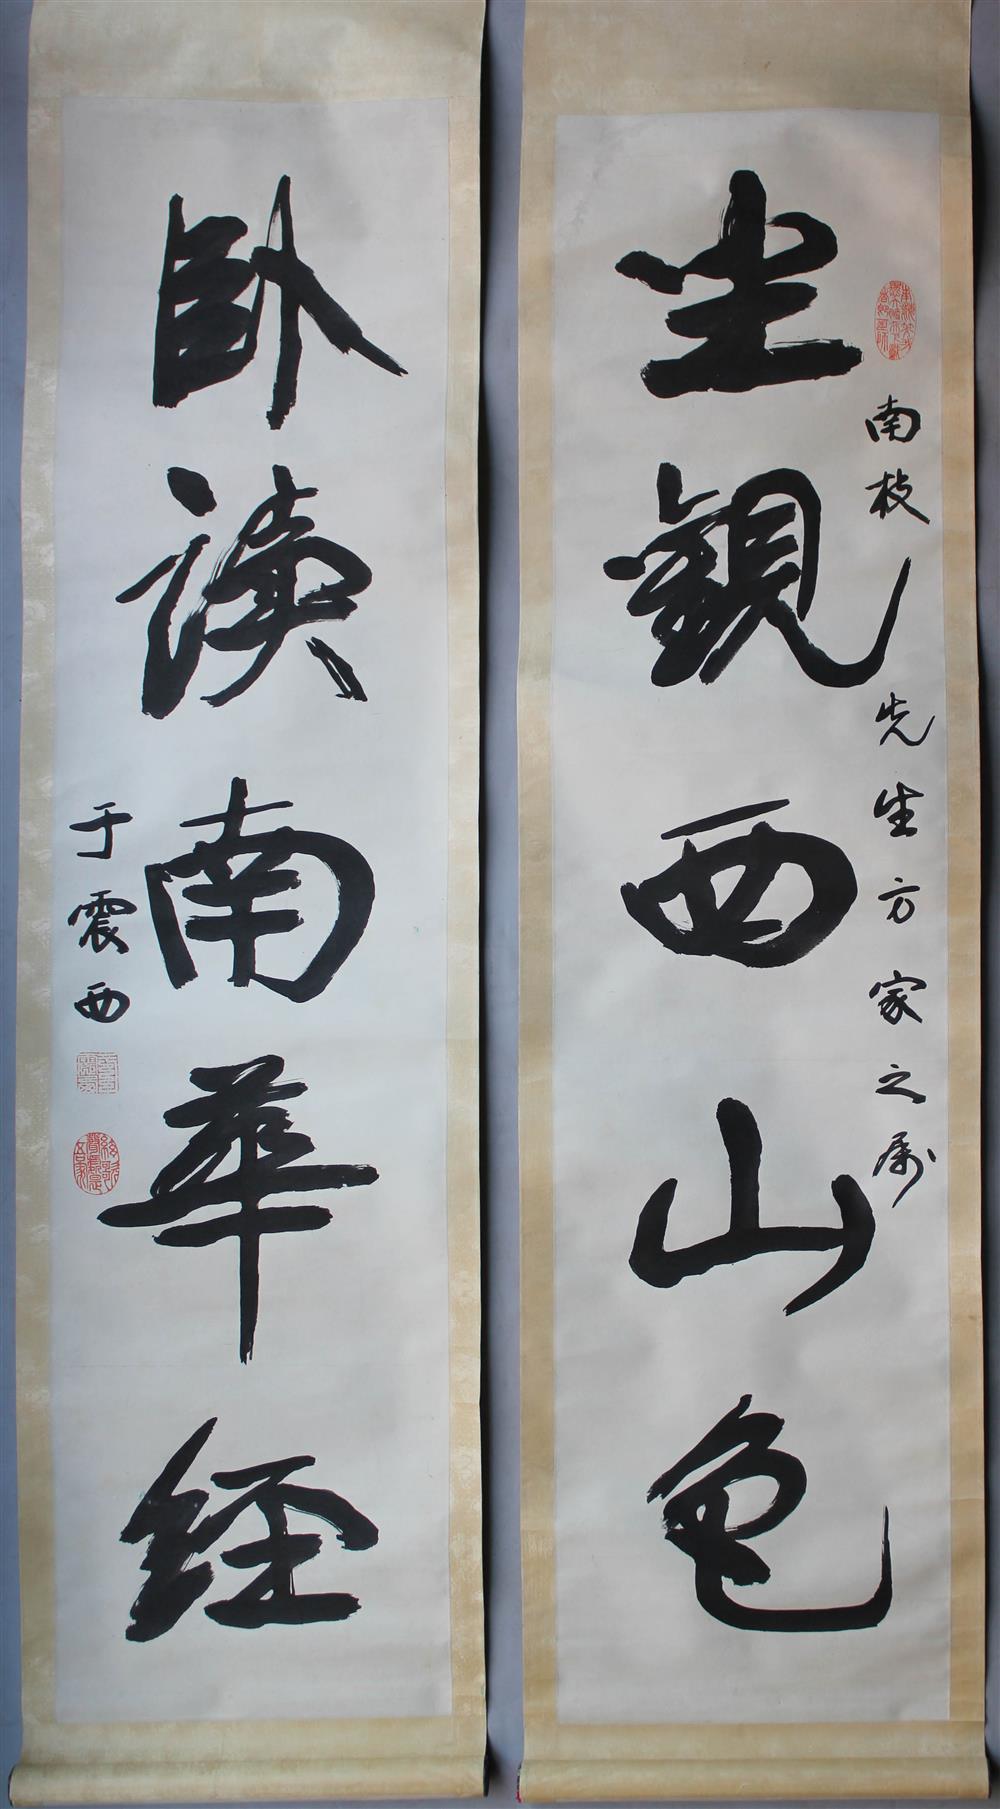 坐觀西山色
南枝先生方家之屬
臥讀南華經
于震西